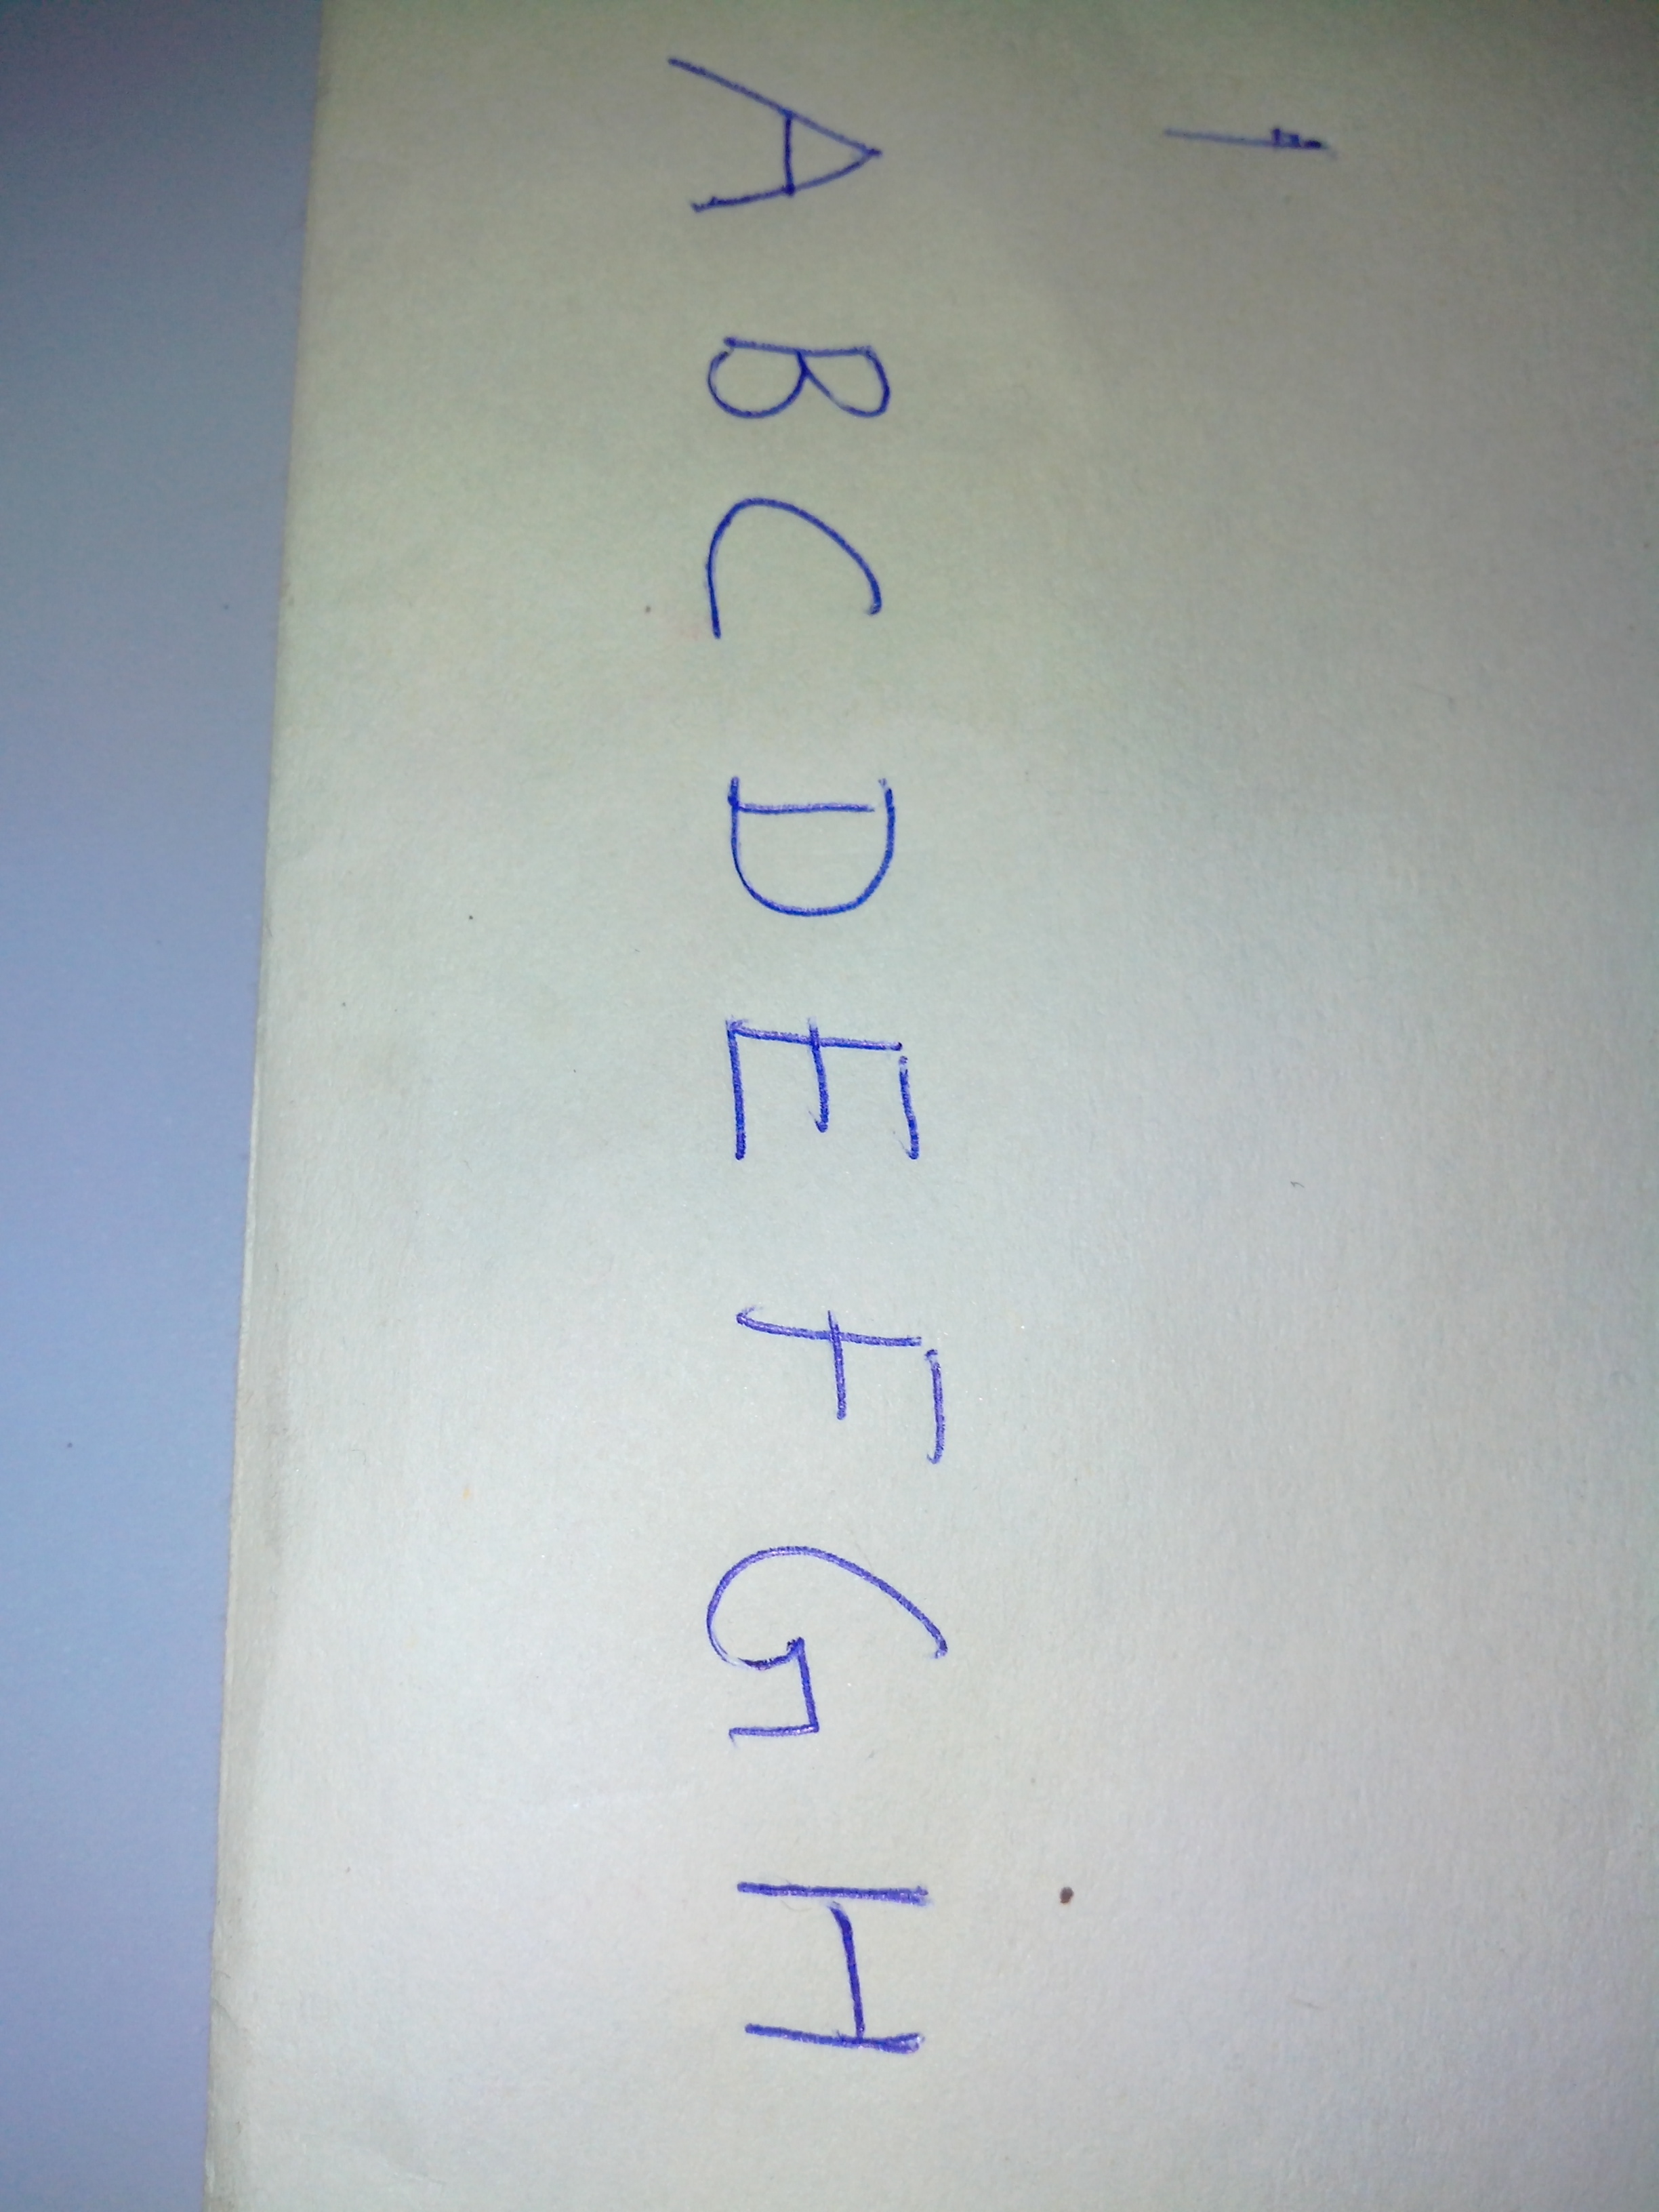 1
A B C D E F G H